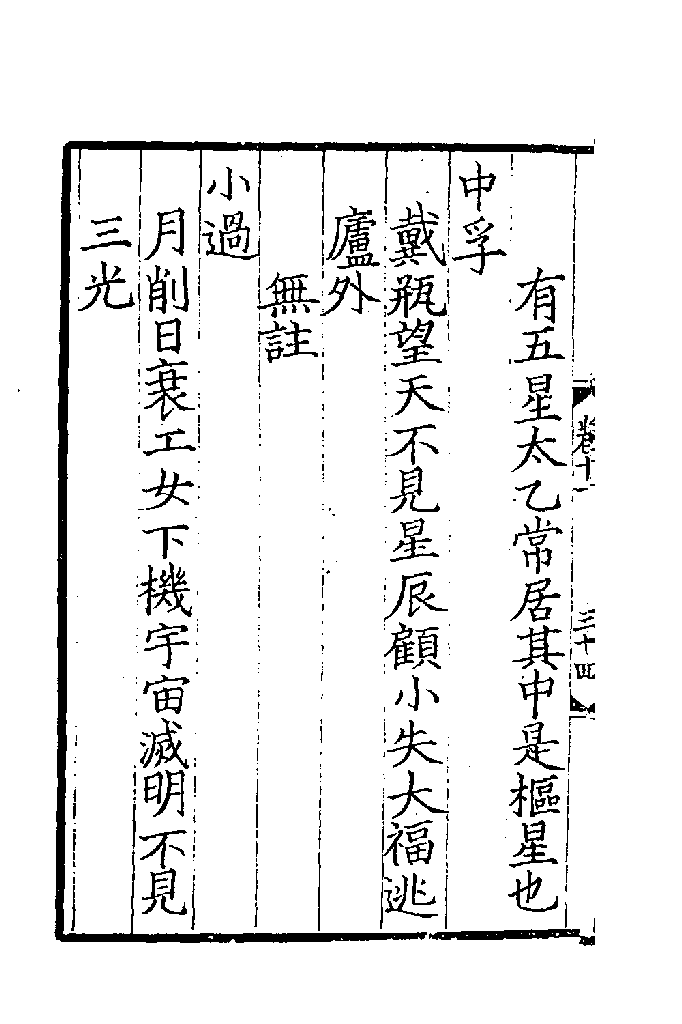 卷十一
三十四
有五星太乙常居其中是樞星也
中孚
戴瓶望天不見星辰顧小失大福逃
廬外
無註
小過
月削日衰工女下機宇宙滅明不見
三光